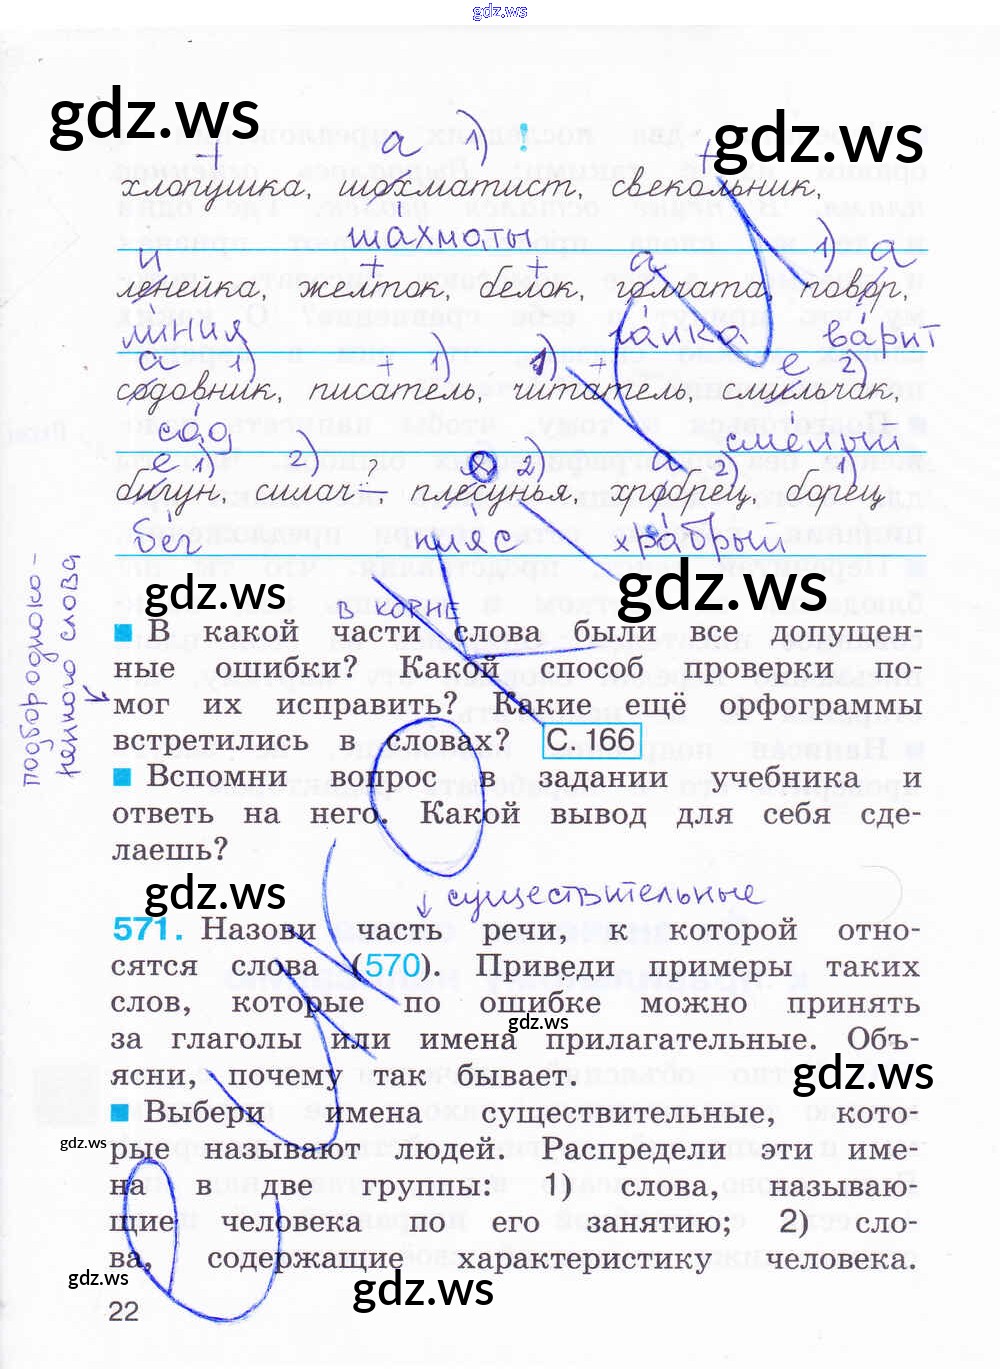 gdz.ws
gdz.ws
gdz.ws
+ а 1) ! +
хлопушка, шохматист, свекольник,
шахматы
и + + а 1) а
ленейка, желток, белок, голчата, повор,
линия галка варит
а 1) + 1) 1) + е 2)
содовник, писатель, читатель, смильчак,
сад смелый
е 1) 2) ? я 2) а 2) 1)
бигун, силач , плесунья, хробрец, борец
бег пляс храбрый
gdz.ws
gdz.ws
в корне
подбор однокоренного слова
В какой части слова были все допущен-
ные ошибки? Какой способ проверки по-
мог их исправить? Какие ещё орфограммы
встретились в словах? С. 166
Вспомни вопрос в задании учебника и
ответь на него. Какой вывод для себя сде-
лаешь?
gdz.ws
существительные
571. Назови часть речи, к которой отно-
сятся слова (570). Приведи примеры таких
слов, которые по ошибке можно принять
gdz.ws
за глаголы или имена прилагательные. Объ-
ясни, почему так бывает.
gdz.ws
Выбери имена существительные, кото-
gdz.ws
рые называют людей. Распредели эти име-
на в две группы: 1) слова, называю-
щие человека по его занятию; 2) сло-
ва, содержащие характеристику человека.
gdz.ws
gdz.ws
22